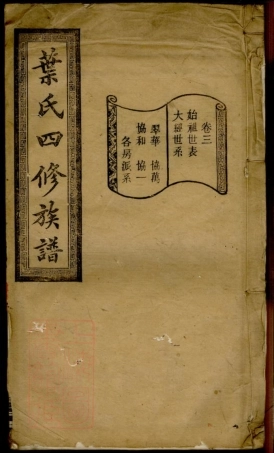 葉氏四修族譜
卷三
始祖世表
大房世系
翠華 協萬
協和 協一
各房振系